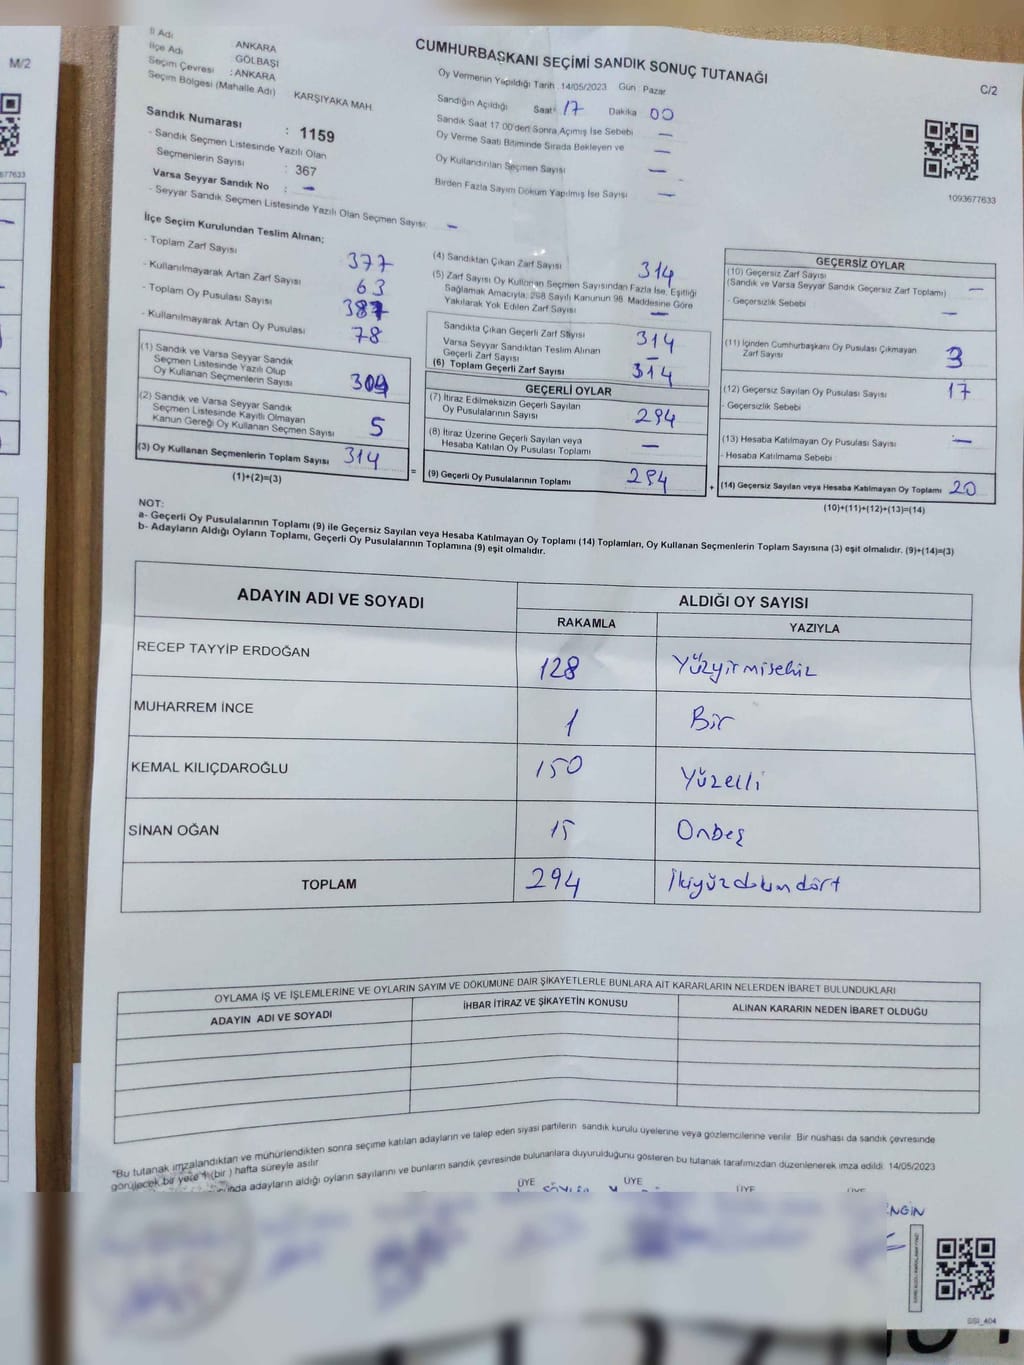 M/2
677633
İl Adı ANKARA
İlçe Adı GÖLBAŞI
Seçim Çevresi : ANKARA
Seçim Bölgesi (Mahalle Adı) KARŞIYAKA MAH.
Sandık Numarası : 1159
- Sandık Seçmen Listesinde Yazılı Olan
Seçmenlerin Sayısı : 367
Varsa Seyyar Sandık No : -
- Seyyar Sandık Seçmen Listesinde Yazılı Olan Seçmen Sayısı: -
CUMHURBAŞKANI SEÇİMİ SANDIK SONUÇ TUTANAĞI
C/2
Oy Vermenin Yapıldığı Tarih : 14/05/2023 Gün : Pazar
Sandığın Açıldığı Saat 17 Dakika 00
Sandık Saat 17:00'den Sonra Açılmış İse Sebebi -
Oy Verme Saati Bitiminde Sırada Bekleyen ve -
Oy Kullandırılan Seçmen Sayısı -
Birden Fazla Sayım Döküm Yapılmış İse Sayısı -
1093677633
İlçe Seçim Kurulundan Teslim Alınan;
- Toplam Zarf Sayısı 377
- Kullanılmayarak Artan Zarf Sayısı 63
- Toplam Oy Pusulası Sayısı 387
- Kullanılmayarak Artan Oy Pusulası 78
(1) Sandık ve Varsa Seyyar Sandık
Seçmen Listesinde Yazılı Olup
Oy Kullanan Seçmenlerin Sayısı 309
(2) Sandık ve Varsa Seyyar Sandık
Seçmen Listesinde Kayıtlı Olmayan
Kanun Gereği Oy Kullanan Seçmen Sayısı 5
(3) Oy Kullanan Seçmenlerin Toplam Sayısı 314
(1)+(2)=(3)
(4) Sandıktan Çıkan Zarf Sayısı 314
(5) Zarf Sayısı Oy Kullanan Seçmen Sayısından Fazla İse, Eşitliği
Sağlamak Amacıyla, 298 Sayılı Kanunun 98. Maddesine Göre
Yakılarak Yok Edilen Zarf Sayısı -
Sandıkta Çıkan Geçerli Zarf Sayısı 314
Varsa Seyyar Sandıktan Teslim Alınan
Geçerli Zarf Sayısı -
(6) Toplam Geçerli Zarf Sayısı 314
GEÇERLİ OYLAR
(7) İtiraz Edilmeksizin Geçerli Sayılan
Oy Pusulalarının Sayısı 294
(8) İtiraz Üzerine Geçerli Sayılan veya
Hesaba Katılan Oy Pusulası Toplamı -
= (9) Geçerli Oy Pusulalarının Toplamı 294 +
GEÇERSİZ OYLAR
(10) Geçersiz Zarf Sayısı
(Sandık ve Varsa Seyyar Sandık Geçersiz Zarf Toplamı) -
- Geçersizlik Sebebi -
(11) İçinden Cumhurbaşkanı Oy Pusulası Çıkmayan
Zarf Sayısı 3
(12) Geçersiz Sayılan Oy Pusulası Sayısı 17
- Geçersizlik Sebebi
(13) Hesaba Katılmayan Oy Pusulası Sayısı -
- Hesaba Katılmama Sebebi
(14) Geçersiz Sayılan veya Hesaba Katılmayan Oy Toplamı 20
(10)+(11)+(12)+(13)=(14)
NOT:
a- Geçerli Oy Pusulalarının Toplamı (9) ile Geçersiz Sayılan veya Hesaba Katılmayan Oy Toplamı (14) Toplamları, Oy Kullanan Seçmenlerin Toplam Sayısına (3) eşit olmalıdır. (9)+(14)=(3)
b- Adayların Aldığı Oyların Toplamı, Geçerli Oy Pusulalarının Toplamına (9) eşit olmalıdır.
ADAYIN ADI VE SOYADI ALDIĞI OY SAYISI
RAKAMLA YAZIYLA
RECEP TAYYİP ERDOĞAN 128 Yüzyirmisekiz
MUHARREM İNCE 1 Bir
KEMAL KILIÇDAROĞLU 150 Yüzelli
SİNAN OĞAN 15 Onbeş
TOPLAM 294 İkiyüzdoksandört
OYLAMA İŞ VE İŞLEMLERİNE VE OYLARIN SAYIM VE DÖKÜMÜNE DAİR ŞİKAYETLERLE BUNLARA AİT KARARLARIN NELERDEN İBARET BULUNDUKLARI
ADAYIN ADI VE SOYADI İHBAR İTİRAZ VE ŞİKAYETİN KONUSU ALINAN KARARIN NEDEN İBARET OLDUĞU
*Bu tutanak imzalandıktan ve mühürlendikten sonra seçime katılan adayların ve talep eden siyasi partilerin sandık kurulu üyelerine veya gözlemcilerine verilir. Bir nüshası da sandık çevresinde
görülecek bir yere 1 (bir) hafta süreyle asılır
adayların aldığı oyların sayılarını ve bunların sandık çevresinde bulunanlara duyurulduğunu gösteren bu tutanak tarafımızdan düzenlenerek imza edildi. 14/05/2023
ÜYE ÜYE ÜYE ÜYE
SSİ_404